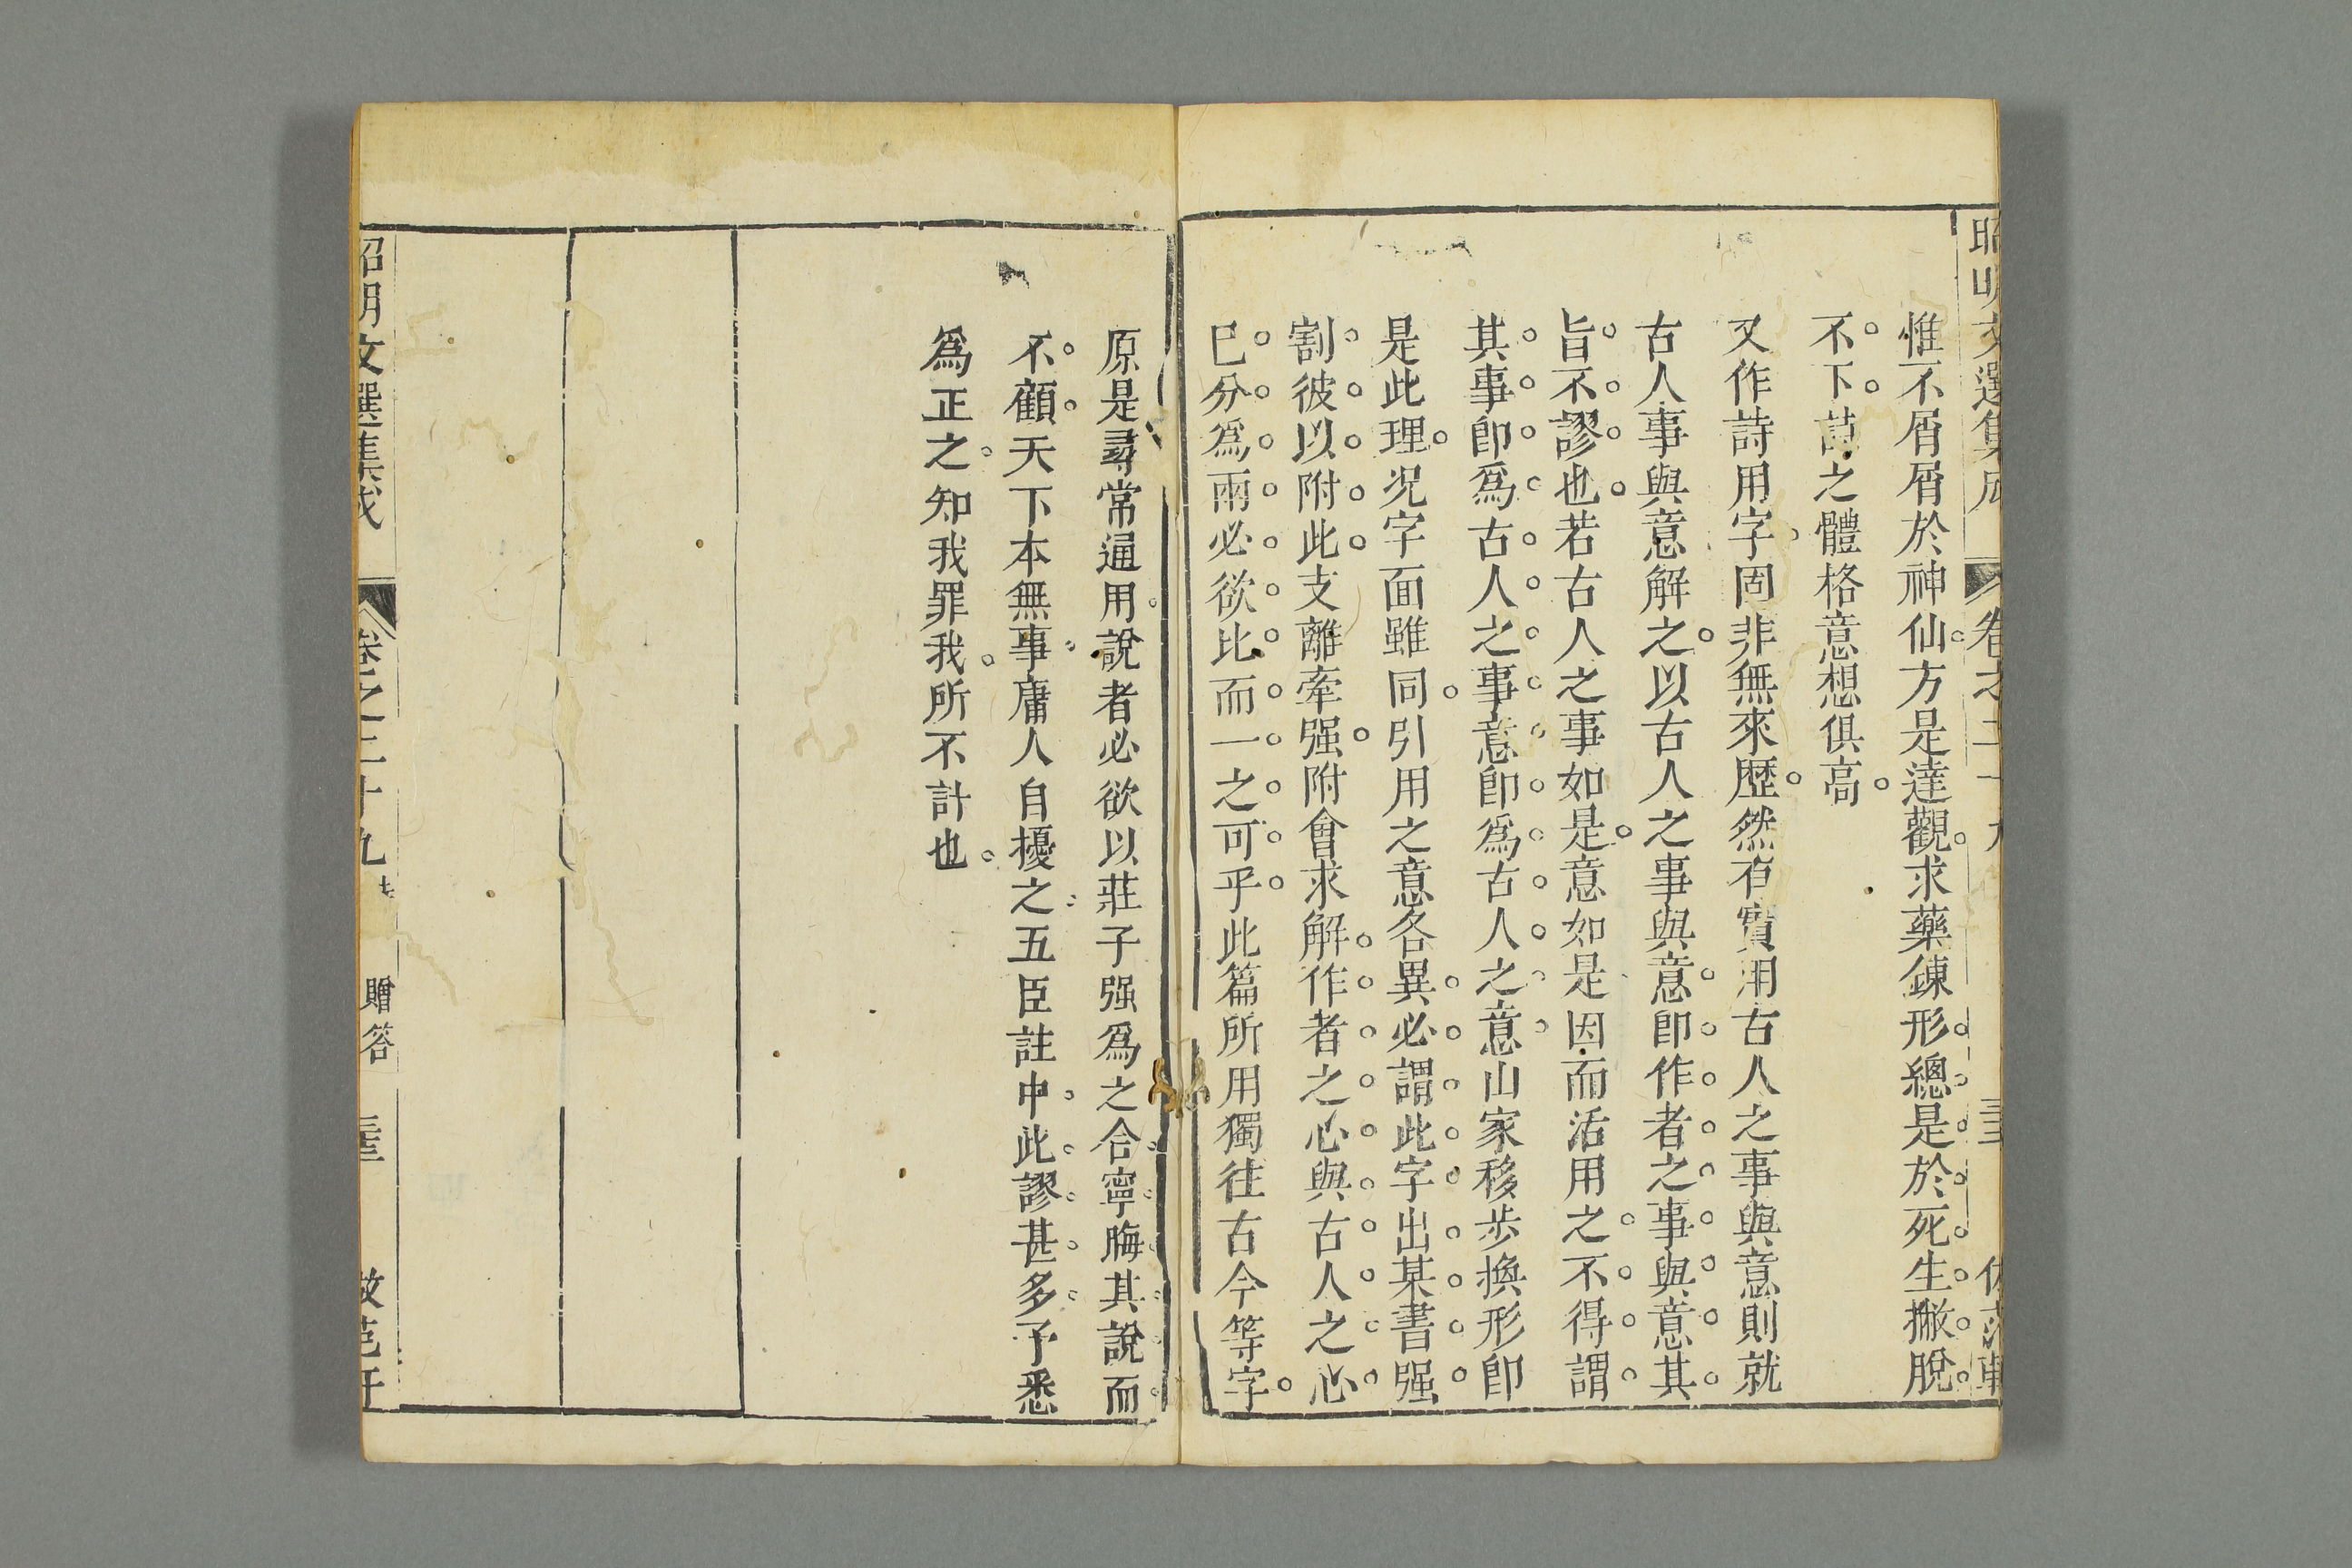 昭明文選集成 卷之二十九
惟不屑屑於神仙方是達觀求藥鍊形總是於死生撇脫
不下詩之體格意想俱高
又作詩用字固非無來歷然有實用古人之事與意則就
古人事與意解之以古人之事與意卽作者之事與意其
旨不謬也若古人之事如是意如是因而活用之不得謂
其事卽爲古人之事意卽爲古人之意山家移步換形卽
是此理況字面雖同引用之意各異必謂此字出某書强
割彼以附此支離牽强附會求解作者之心與古人之心
已分爲兩必欲比而一之可乎此篇所用獨往古今等字
原是尋常通用說者必欲以莊子强爲之合寧晦其說而
不顧天下本無事庸人自擾之五臣註中此謬甚多予悉
爲正之知我罪我所不計也
昭明文選集成 卷之二十九 贈答